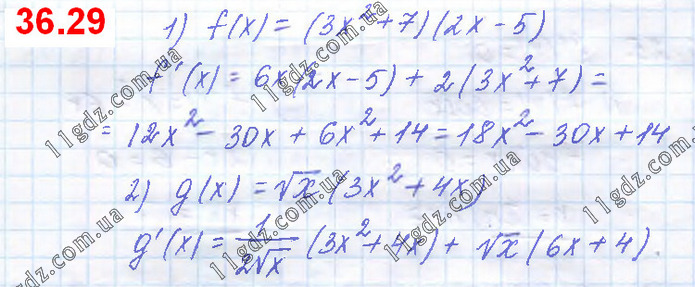 36.29
1) f(x) = (3x² + 7)(2x - 5)
f'(x) = 6x(2x - 5) + 2(3x² + 7) =
= 12x² - 30x + 6x² + 14 = 18x² - 30x + 14
2) g(x) = √x (3x² + 4x)
g'(x) = 1/(2√x) (3x² + 4x) + √x (6x + 4).
11gdz.com.ua
11gdz.com.ua
11gdz.com.ua
11gdz.com.ua
11gdz.com.ua
11gdz.com.ua